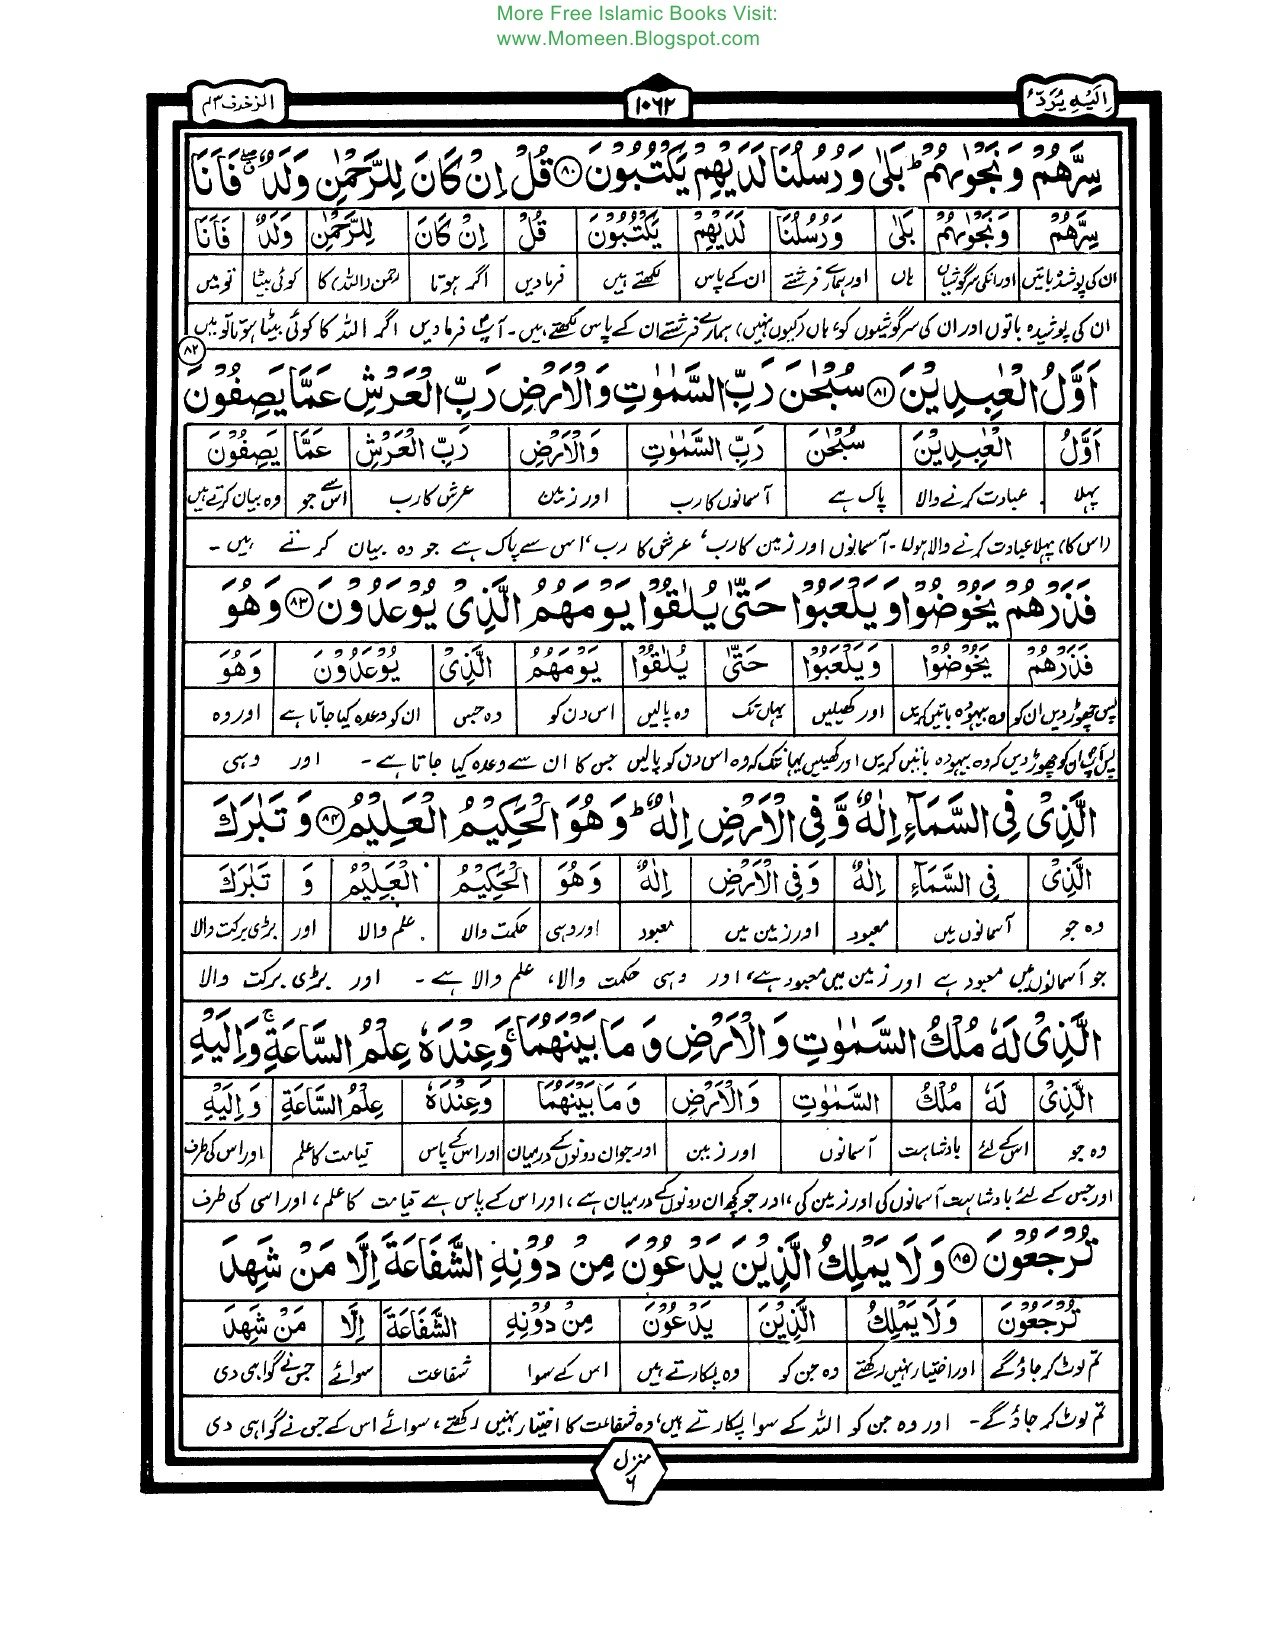 More Free Islamic Books Visit:
www.Momeen.Blogspot.com
اِلَیْهِ یُرَدُّ ۱۰۶۲ الزخرف ۴۳
سِرَّهُمْ وَ نَجْوٰىهُمْ ؕ بَلٰی وَ رُسُلُنَا لَدَیْهِمْ یَكْتُبُوْنَ ۸۰ قُلْ اِنْ كَانَ لِلرَّحْمٰنِ وَلَدٌ ۖ فَاَنَا
سِرَّهُمْ وَنَجْوٰىهُمْ بَلٰی وَرُسُلُنَا لَدَیْهِمْ یَكْتُبُوْنَ قُلْ اِنْ كَانَ لِلرَّحْمٰنِ وَلَدٌ فَاَنَا
ان کی پوشیدہ باتیں اور انکی سرگوشیاں ہاں اور ہمارے فرشتے ان کے پاس لکھتے ہیں فرمادیں اگر ہوتا رحمن (اللہ) کا کوئی بیٹا تو میں
ان کی پوشیدہ باتوں اور ان کی سرگوشیوں کو؟ ہاں (کیوں نہیں) ہمارے فرشتے ان کے پاس لکھتے ہیں۔ آپؐ فرمادیں اگر اللہ کا کوئی بیٹا ہوتا تو میں
اَوَّلُ الْعٰبِدِیْنَ ۸۱ سُبْحٰنَ رَبِّ السَّمٰوٰتِ وَالْاَرْضِ رَبِّ الْعَرْشِ عَمَّا یَصِفُوْنَ ۸۲
اَوَّلُ الْعٰبِدِیْنَ سُبْحٰنَ رَبِّ السَّمٰوٰتِ وَالْاَرْضِ رَبِّ الْعَرْشِ عَمَّا یَصِفُوْنَ
پہلا عبادت کرنے والا پاک ہے آسمانوں کا رب اور زمین عرش کا رب اس سے جو وہ بیان کرتے ہیں
(اس کا) پہلا عبادت کرنے والا ہوتا۔ آسمانوں اور زمین کا رب، عرش کا رب، اس سے پاک ہے جو وہ بیان کرتے ہیں۔
فَذَرْهُمْ یَخُوْضُوْا وَیَلْعَبُوْا حَتّٰی یُلٰقُوْا یَوْمَهُمُ الَّذِیْ یُوْعَدُوْنَ ۸۳ وَهُوَ
فَذَرْهُمْ یَخُوْضُوْا وَیَلْعَبُوْا حَتّٰی یُلٰقُوْا یَوْمَهُمُ الَّذِیْ یُوْعَدُوْنَ وَهُوَ
پس چھوڑ دیں ان کو وہ بیہودہ باتیں کریں اور کھیلیں یہاں تک وہ پالیں اس دن کو وہ جس ان کو وعدہ کیا جاتا ہے اور وہ
پس آپؐ ان کو چھوڑ دیں کہ وہ بیہودہ باتیں کریں اور کھیلیں یہانتک کہ وہ اس دن کو پالیں جس کا ان سے وعدہ کیا جاتا ہے۔ اور وہی
الَّذِیْ فِی السَّمَآءِ اِلٰهٌ وَّ فِی الْاَرْضِ اِلٰهٌ ؕ وَهُوَ الْحَكِیْمُ الْعَلِیْمُ ۸۴ وَ تَبٰرَكَ
الَّذِیْ فِی السَّمَآءِ اِلٰهٌ وَفِی الْاَرْضِ اِلٰهٌ وَهُوَ الْحَكِیْمُ الْعَلِیْمُ وَ تَبٰرَكَ
وہ جو آسمانوں میں معبود اور زمین میں معبود اور وہی حکمت والا علم والا اور بڑی برکت والا
جو آسمانوں میں معبود ہے اور زمین میں معبود ہے، اور وہی حکمت والا، علم والا ہے۔ اور بڑی برکت والا
الَّذِیْ لَهٗ مُلْكُ السَّمٰوٰتِ وَ الْاَرْضِ وَ مَا بَیْنَهُمَا ۚ وَعِنْدَهٗ عِلْمُ السَّاعَةِ ۚ وَاِلَیْهِ
الَّذِیْ لَهٗ مُلْكُ السَّمٰوٰتِ وَالْاَرْضِ وَمَا بَیْنَهُمَا وَعِنْدَهٗ عِلْمُ السَّاعَةِ وَاِلَیْهِ
وہ جو اس کے لئے بادشاہت آسمانوں اور زمین اور جو ان دونوں کے درمیان اور اس کے پاس قیامت کا علم اور اس کی طرف
اور جس کے لئے بادشاہت آسمانوں کی اور زمین کی، اور جو کچھ ان دونوں کے درمیان ہے، اور اس کے پاس ہے قیامت کا علم، اور اسی کی طرف
تُرْجَعُوْنَ ۸۵ وَ لَا یَمْلِكُ الَّذِیْنَ یَدْعُوْنَ مِنْ دُوْنِهِ الشَّفَاعَةَ اِلَّا مَنْ شَهِدَ
تُرْجَعُوْنَ وَلَا یَمْلِكُ الَّذِیْنَ یَدْعُوْنَ مِنْ دُوْنِهِ الشَّفَاعَةَ اِلَّا مَنْ شَهِدَ
تم لوٹ کر جاؤ گے اور اختیار نہیں رکھتے وہ جن کو وہ پکارتے ہیں اس کے سوا شفاعت سوائے جس نے گواہی دی
تم لوٹ کر جاؤ گے۔ اور وہ جن کو اللہ کے سوا پکارتے ہیں، وہ شفاعت کا اختیار نہیں رکھتے، سوائے اس کے جس نے گواہی دی
منزل ۶